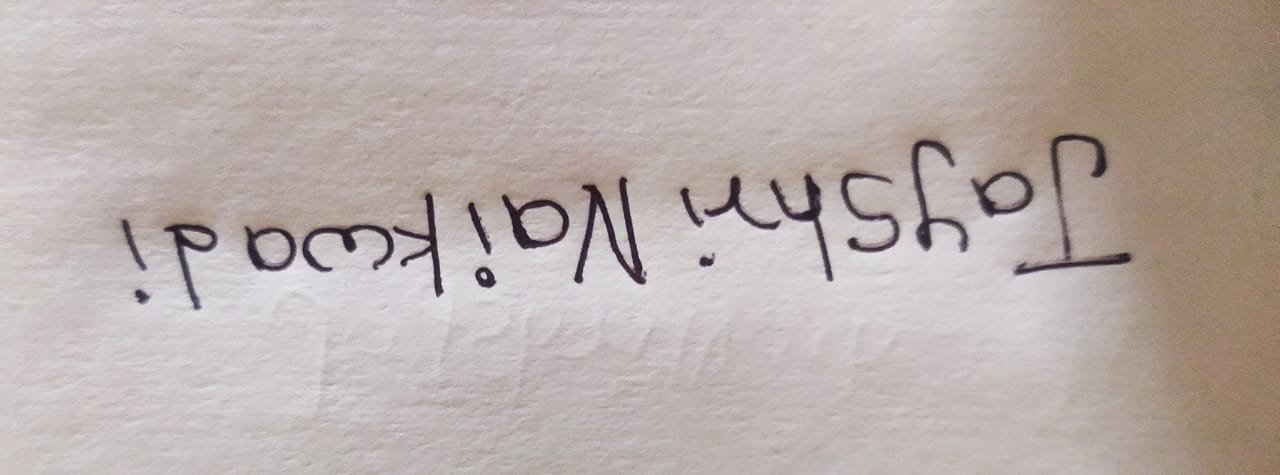 Jayshri Naikwadi